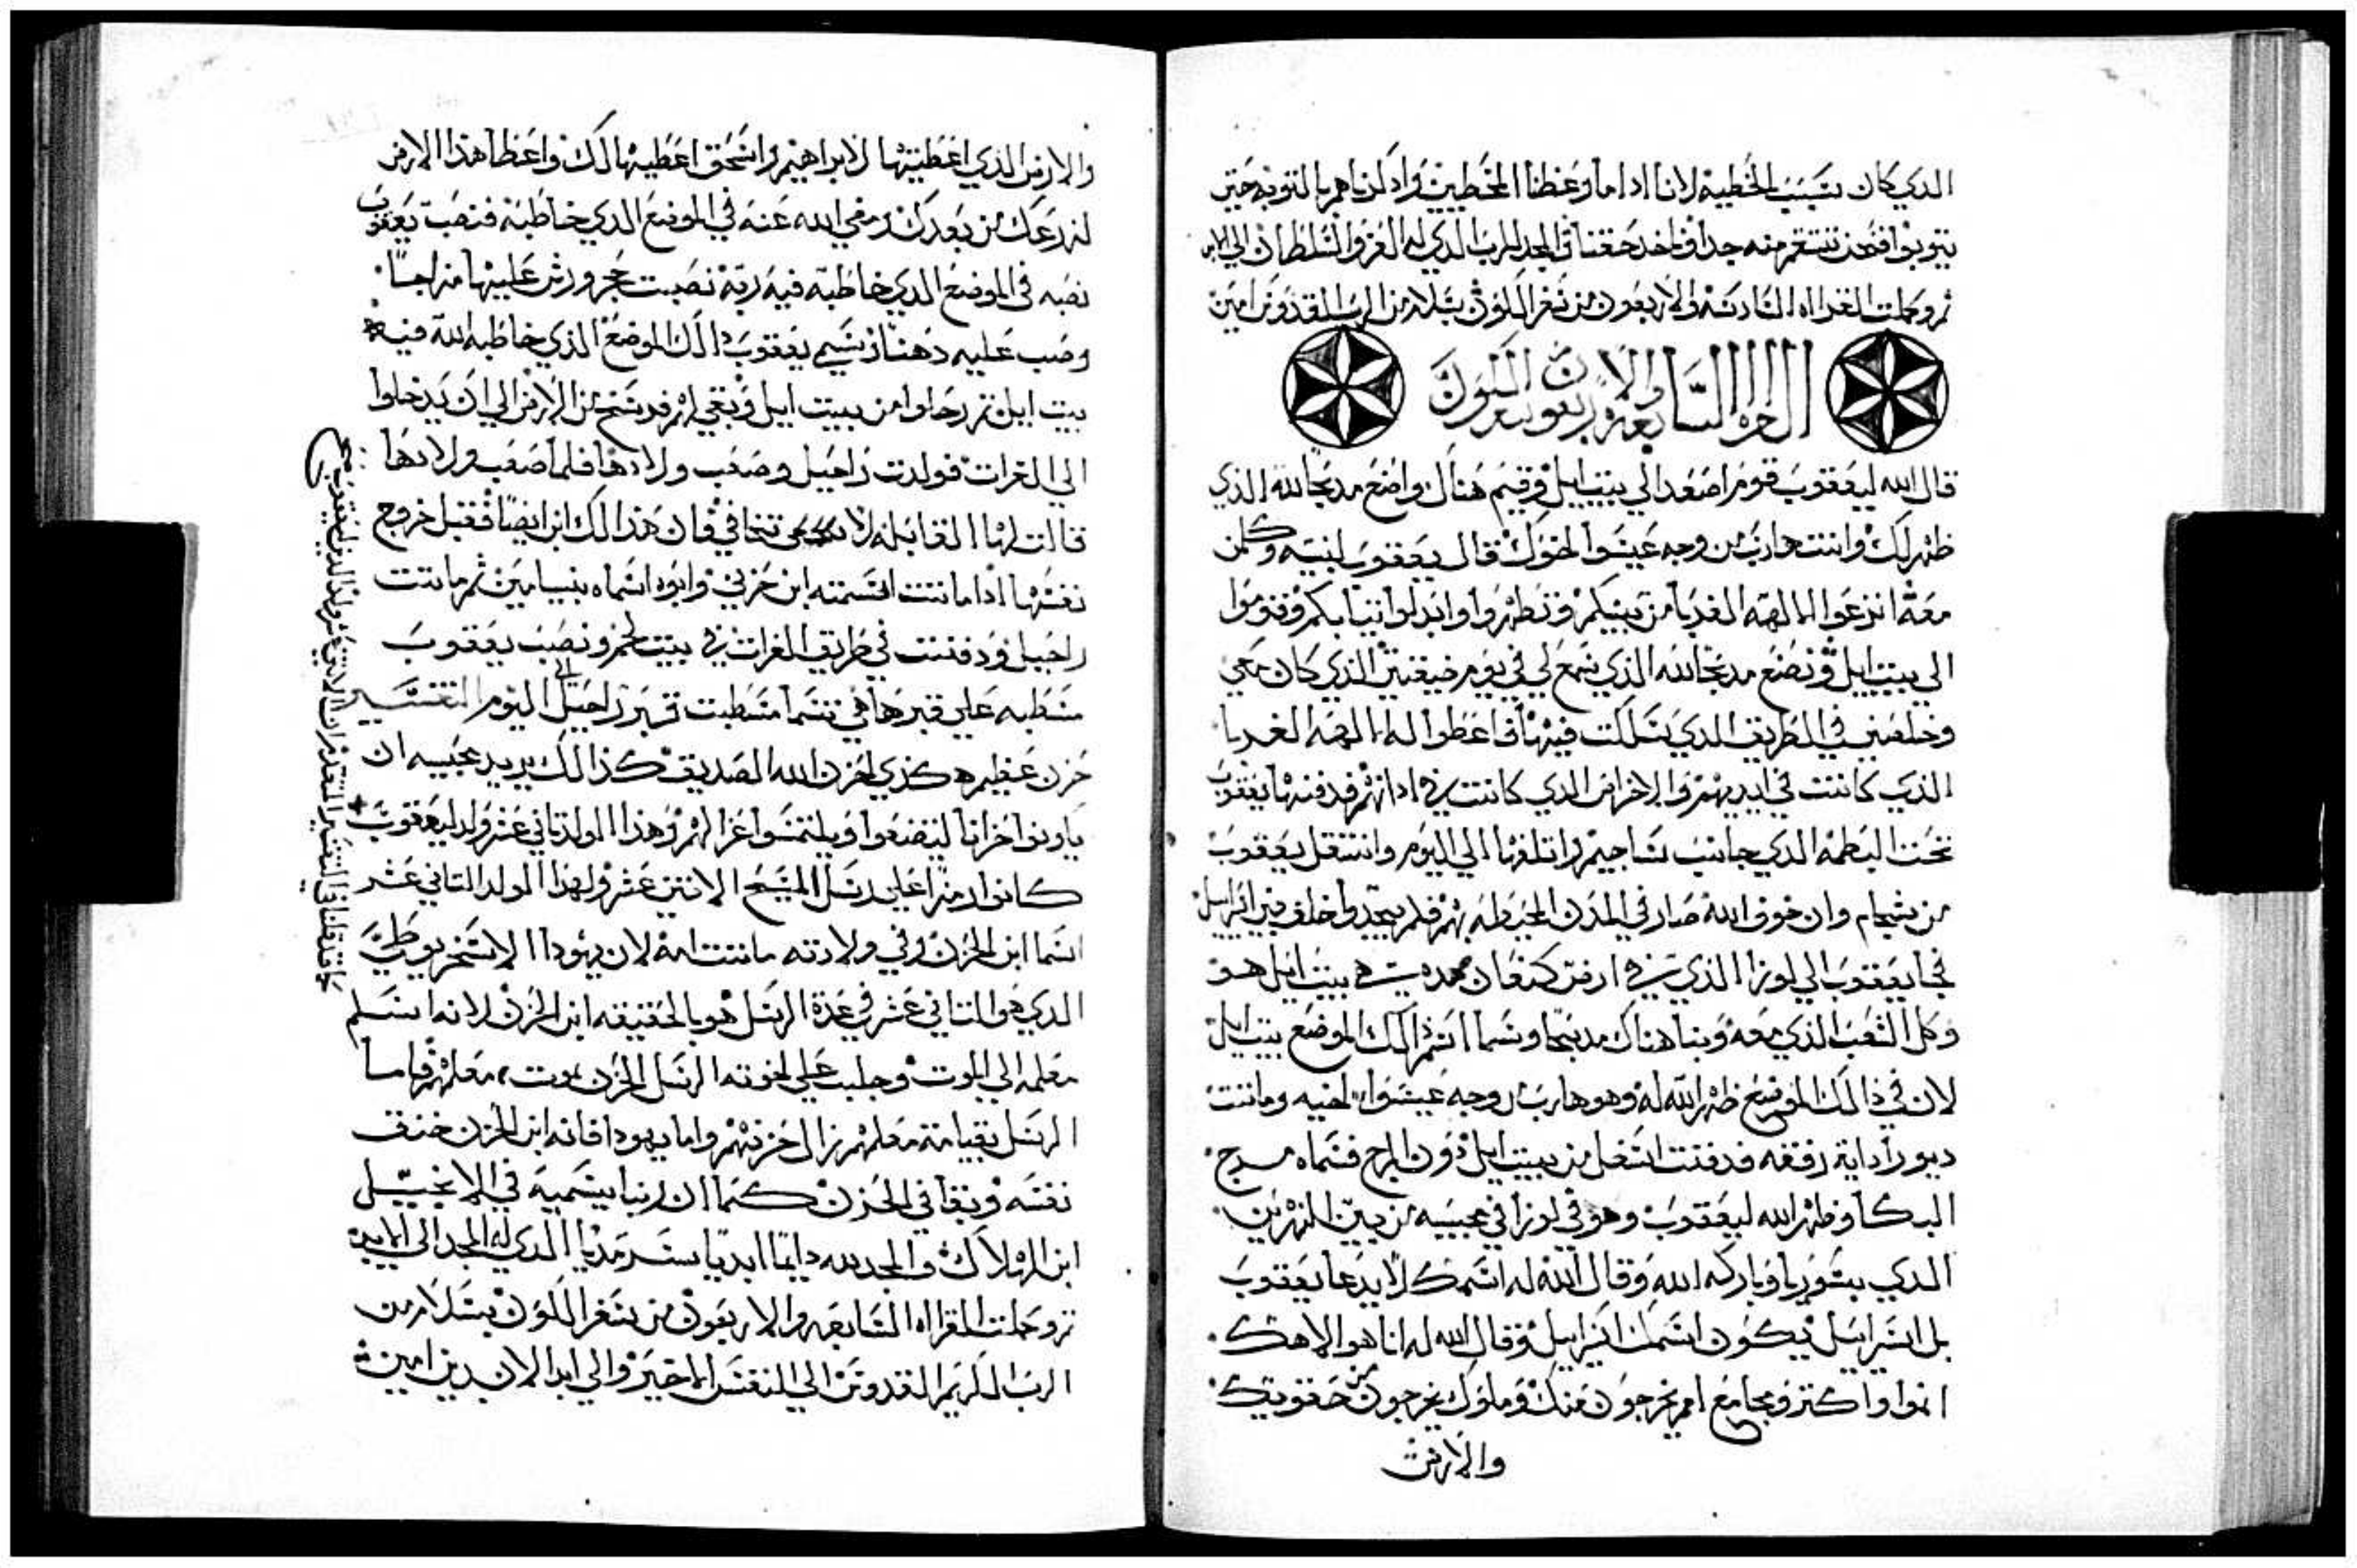 الدي كان بسبب الخطية لاننا ادا ما وعظنا المخطيين وادلناهم بالتوبه حتى
يتوبوا فنحن ننتقم منه جدا وناخد حقنا والمجد للرب الدي له العز والسلطان الي الابد
تم وكملت القراه السادسه والاربعون من سفر الملوك بسلام من الرب القدوس امين
القراه السابعه والاربعون سفر الملوك
قال الله ليعقوب قوم اصعد الي بيت ايل وقيم هناك واضع مدبحا لله الذي
ظهر لك وانت هارب من وجه عيسوا اخوك قال يعقوب لبنيه وكلمن
معه انزعوا الالهه الغربا من بينكم وتطهروا وابدلوا تيابكم وقوموا
الي بيت ايل ونضع مدبحا لله الذي سمع لي في يوم ضيقتي الذي كان معي
وخلصني في الطريق الدي سلكت فيها فاعطوا له الهه الغربا
الذي كانت في ايديهم والاخراص الدي كانت في ادانهم فدفنها يعقوب
تحت البطمه الدي جانب شاجيم واتلفها الي اليوم وانتقل يعقوب
من شجام وان خوف الله صار في المدن المحيطه بهم فلم يجدوا خلف بني اسراييل
فجا يعقوب الي لوزا الذي في ارض كنعان هده هي بيت ايل هو
وكل الشعب الذي معه وبنا هناك مدبحا وسما اسم ذالك الموضع بيت ايل
لان في ذالك الموضع ظهر الله له وهو هارب من وجه عيسوا اخيه وماتت
ديورا داية رفقه فدفنت اسفل من بيت ايل دون المرج فسماه مرج
البكا وظهر الله ليعقوب وهو في لوزا في مجيه من بين النهرين
الدي بسوريا وباركه الله وقال الله له اسمك لا يدعا يعقوب
بل اسراييل يكون اسمك اسراييل وقال الله له انا هو الاهك
انموا واكتر ومجامع امم يخرجون منك وملوك يخرجون من حقويك
والارض
والارض الذي اعطيتها لابراهيم واسحق اعطيها لك واعطا هذا الارض
لزرعك من بعدك ومضي الله عنه في الموضع الدي خاطبه فنصب يعقوب
نصبه في الموضع الدي خاطبه فيه ربه نصبت حجر ورش عليها مزاجا
وصب عليه دهنا وسمي يعقوب دالك الموضع الذي خاطبه الله فيه
بيت ايل تم رحلوا من بيت ايل وبقي لهم فرسخ من الارض الي ان يدخلوا
الي الفرات فولدت راحيل وصعب ولادها فلما صعب ولادها
قالت لها القابله لا تخافي فان هذا لك ابن ايضا فقبل خروج
نفسها ادا ماتت اسمته ابن حزني وابوه اسماه بنيامين ثم ماتت
راحيل ودفنت في طريق الفرات في بيت لحم ونصب يعقوب
مسطبه علي قبرها هي تسما مسطبت قبر راحيل الي اليوم التفسير
حزن عظيم هكذي احزن الله الصديق كذالك يريد محبيه ان
ياونوا حزانا ليتضعوا ويلتمسوا عزالهم وهذا المولد تاني عشر ولد ليعقوب
كانوا رمزا علي رسل المسيح الاتني عشر ولهذا المولد التاني عشر
اسما ابن الحزن وفي ولادته ماتت امه لان يهودا الاسخريوطي
الدي هو التاني عشر في عدة الرسل هو بالحقيقه ابن الحزن لانه اسلم
معلمه الي الموت وجلب علي اخوته الرسل الحزن بموت معلمهم فاما
الرسل بقيامة معلمهم زال حزنهم واما يهودا فانه ابن الحزن خنق
نفسه وبقا في الحزن كما ان ربنا يسميه في الانجيل
ابن الهلاك والمجد لله دايما ابديا سرمديا الدي له المجد الي الابد
تم وكملت القراه السابعه والاربعون من سفر الملوك بسلام من
الرب الكريم القدوس الي النفس الاخير والي ابد الابدين امين